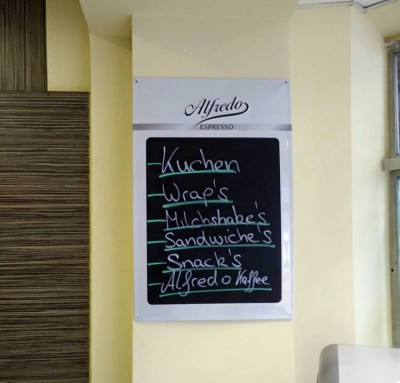 Alfredo
ESPRESSO
- Kuchen
- Wrap's
- Milchshake's
- Sandwiche's
- Snack's
- Alfredo Kaffee